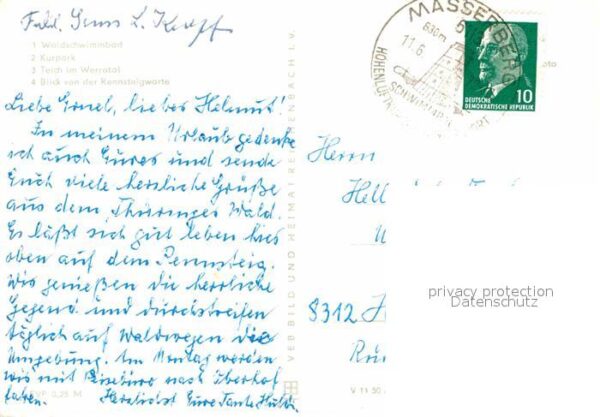 1 Waldschwimmbad
2 Kurpark
3 Teich im Werratal
4 Blick von der Rennsteigwarte
Liebe Gretel, lieber Helmut!
In meinem Urlaub gedenke
ich auch Eurer und sende
Euch viele herzliche Grüße
aus dem Thüringer Wald.
Es läßt sich gut leben hier
oben auf dem Rennsteig.
Wir genießen die herrliche
Gegend und durchstreifen
täglich auf Waldwegen die
Umgebung. Am Montag werden
wir mit Reisebüro nach Oberhof
fahren. Herzlichst Eure Tante Hulda
EVP 0,25 M
VEB BILD UND HEIMAT REICHENBACH I. V.
MASSERBERG
630m
11.6
DEUTSCHE
DEMOKRATISCHE REPUBLIK
10
Herrn
8312
V 11 50
privacy protection
Datenschutz